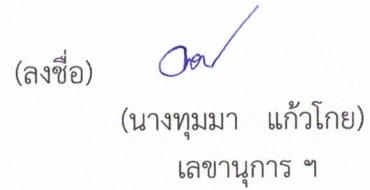 (ลงชื่อ)
(นางทุมมา แก้วโกย)
เลขานุการ ฯ